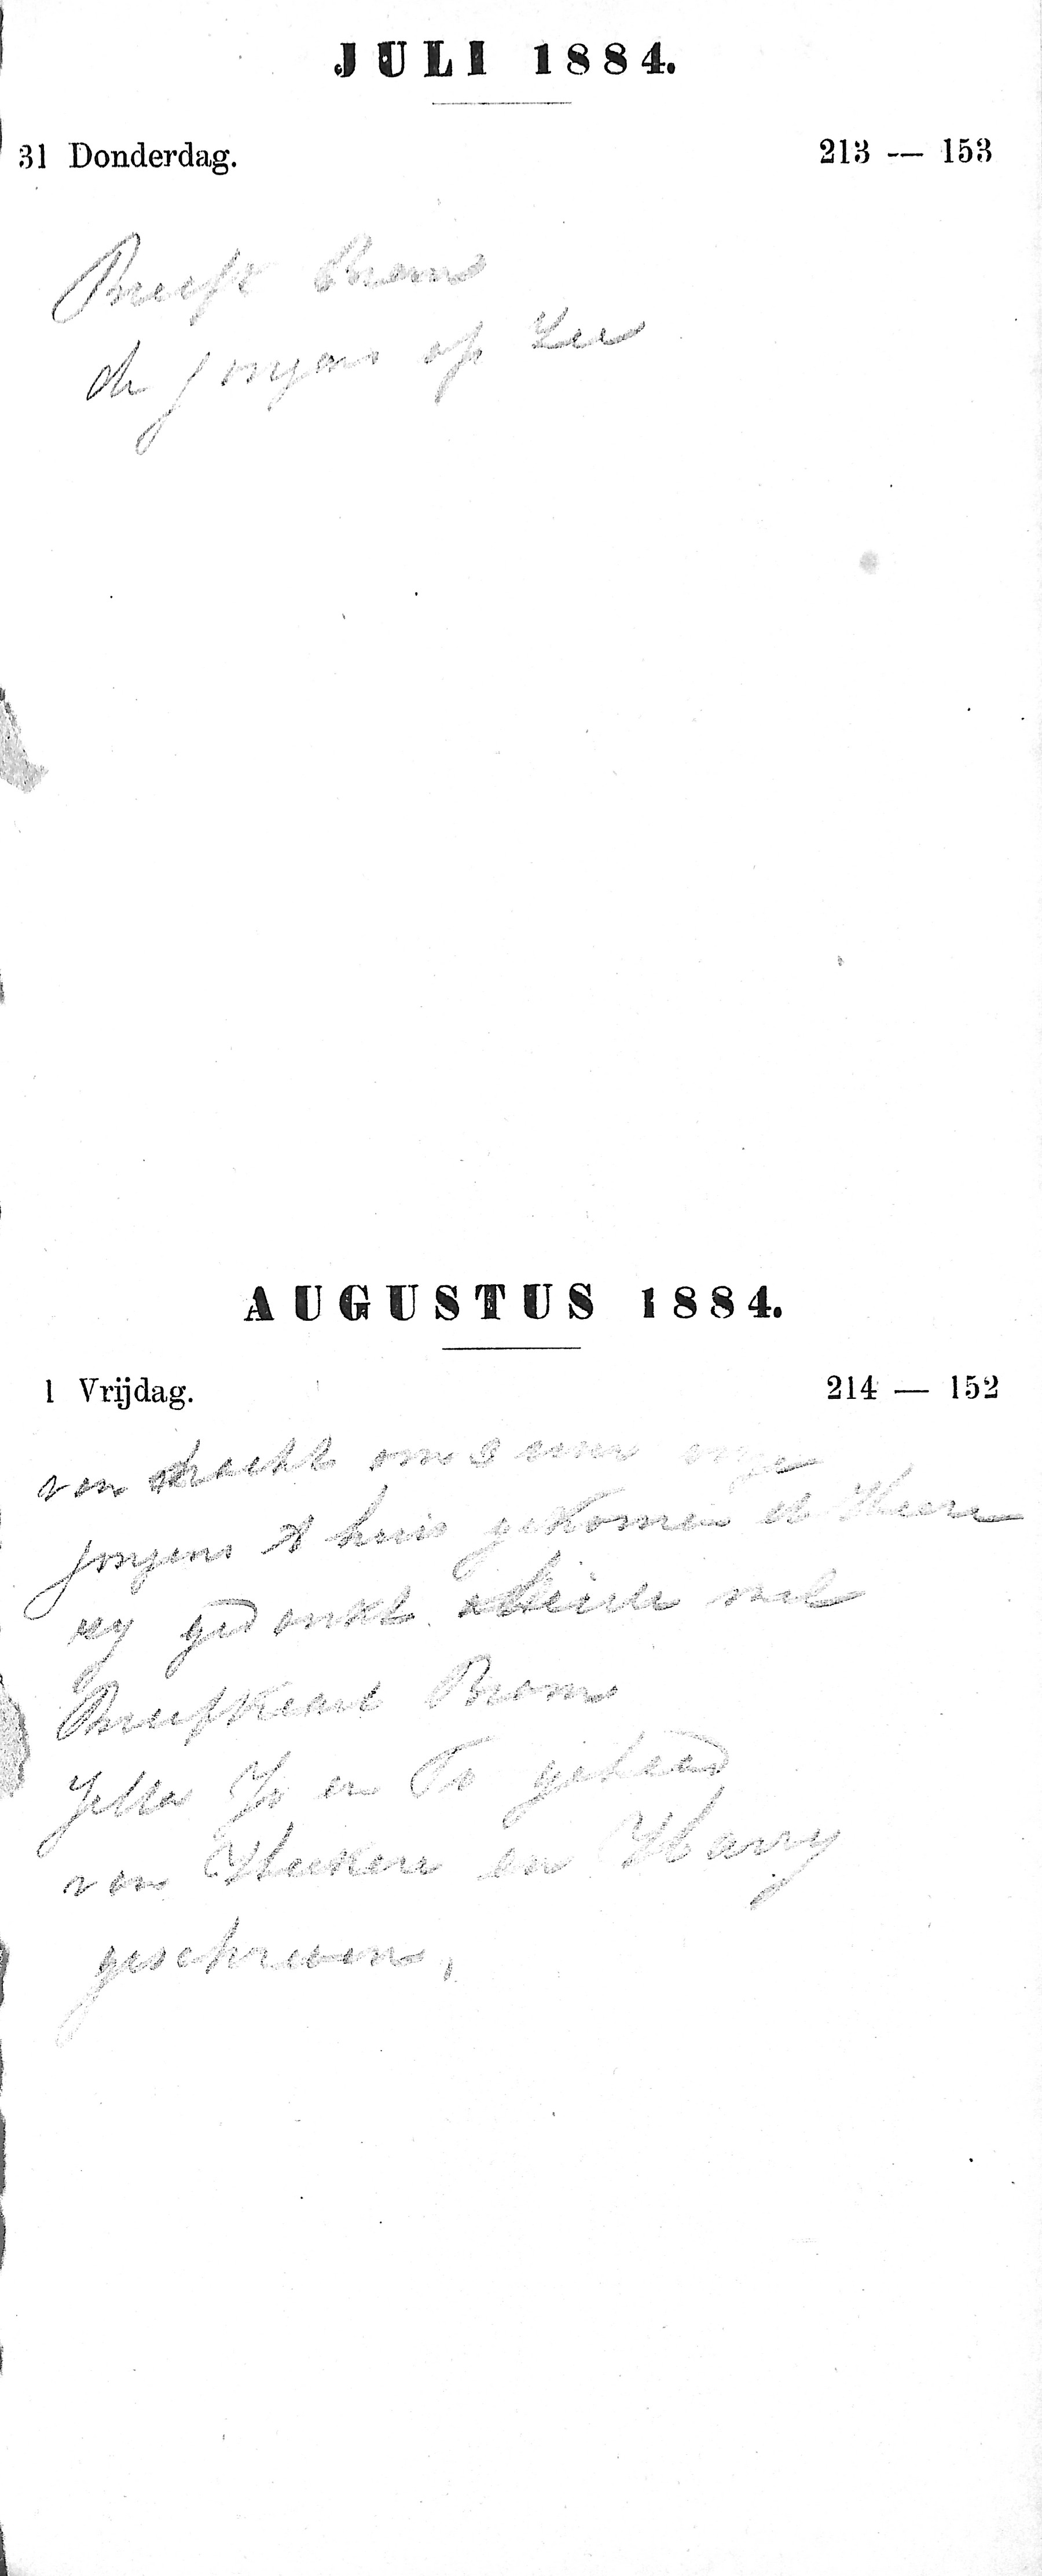 JULI 1884.
31 Donderdag. 213 — 153
Briefk Broms
de jongens op Zee
AUGUSTUS 1884.
1 Vrijdag. 214 — 152
van nacht om 3 uur onze
jongens t huis gekomen de Heere
zy gedankt met
Briefkaart Broms
Jelle Jo en To gehad
van en Harry
geschreven,